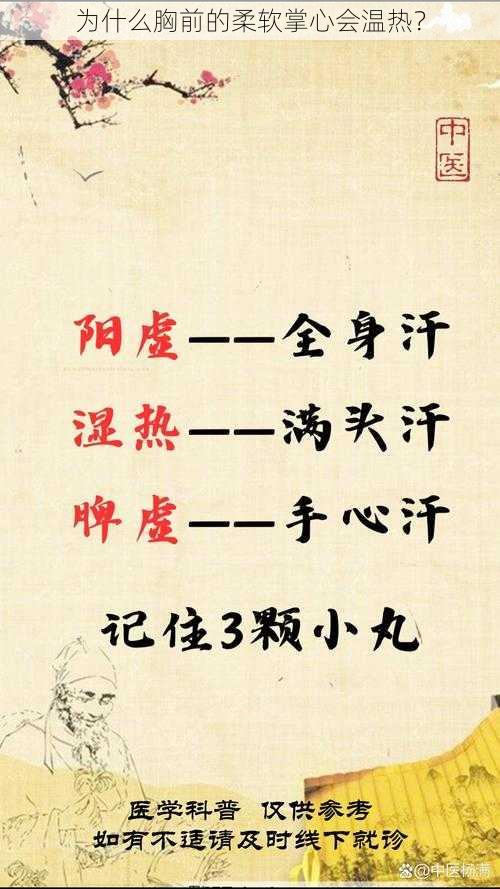 为什么胸前的柔软掌心会温热？
中医
阳虚——全身汗
湿热——满头汗
脾虚——手心汗
记住3颗小丸
医学科普 仅供参考
如有不适请及时线下就诊
@中医杨满